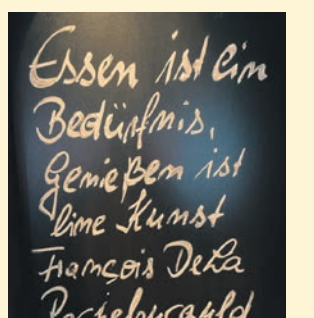 Essen ist ein
Bedürfnis,
Genießen ist
eine Kunst
François De La
Rochefoucauld